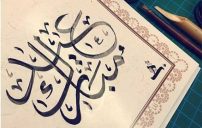 عيد مبارك